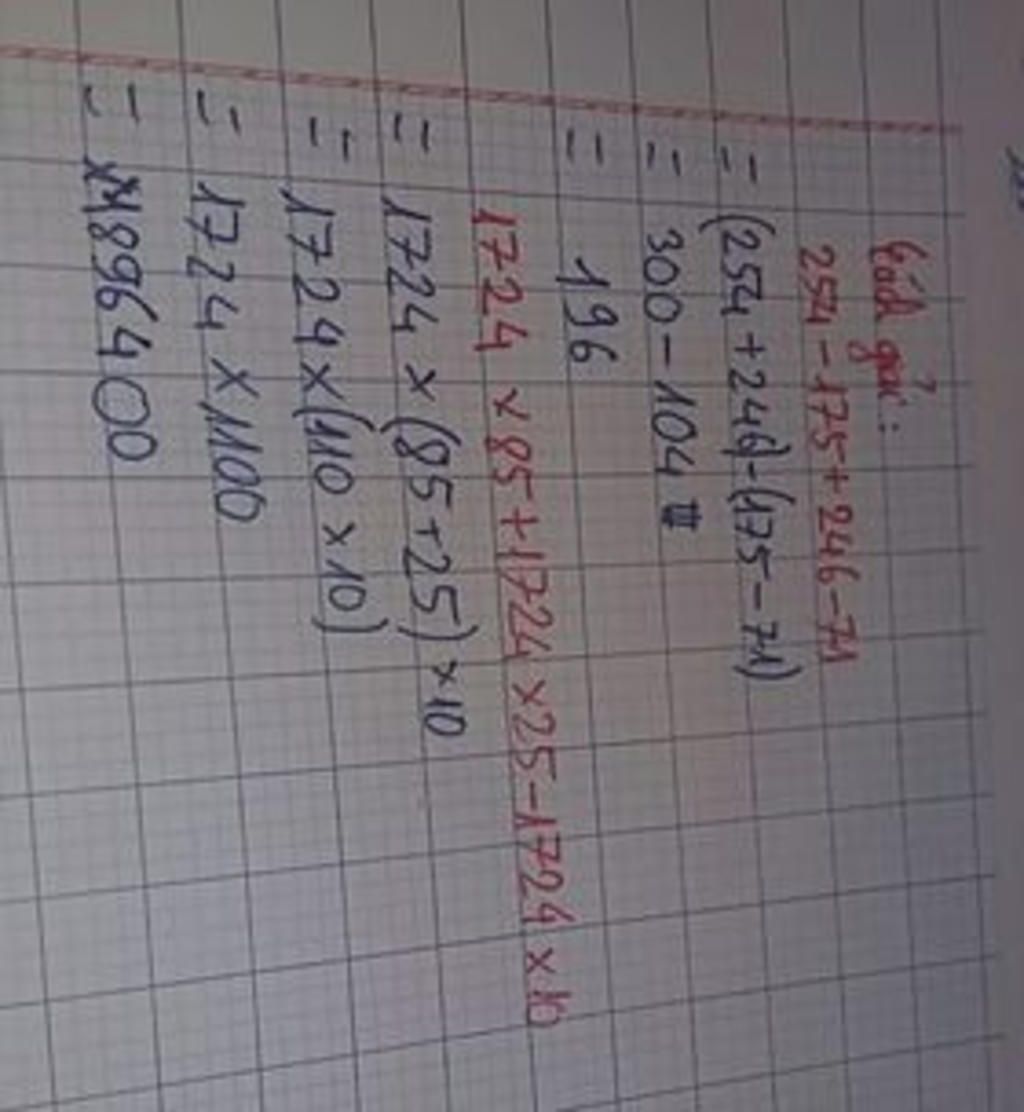 Cách giải:
254 - 175 + 246 - 71
= (254 + 246) - (175 - 71)
= 300 - 104
= 196
1724 × 85 + 1724 × 25 - 1724 × 10
= 1724 × (85 + 25) × 10
= 1724 × (110 × 10)
= 1724 × 1100
= 1896400